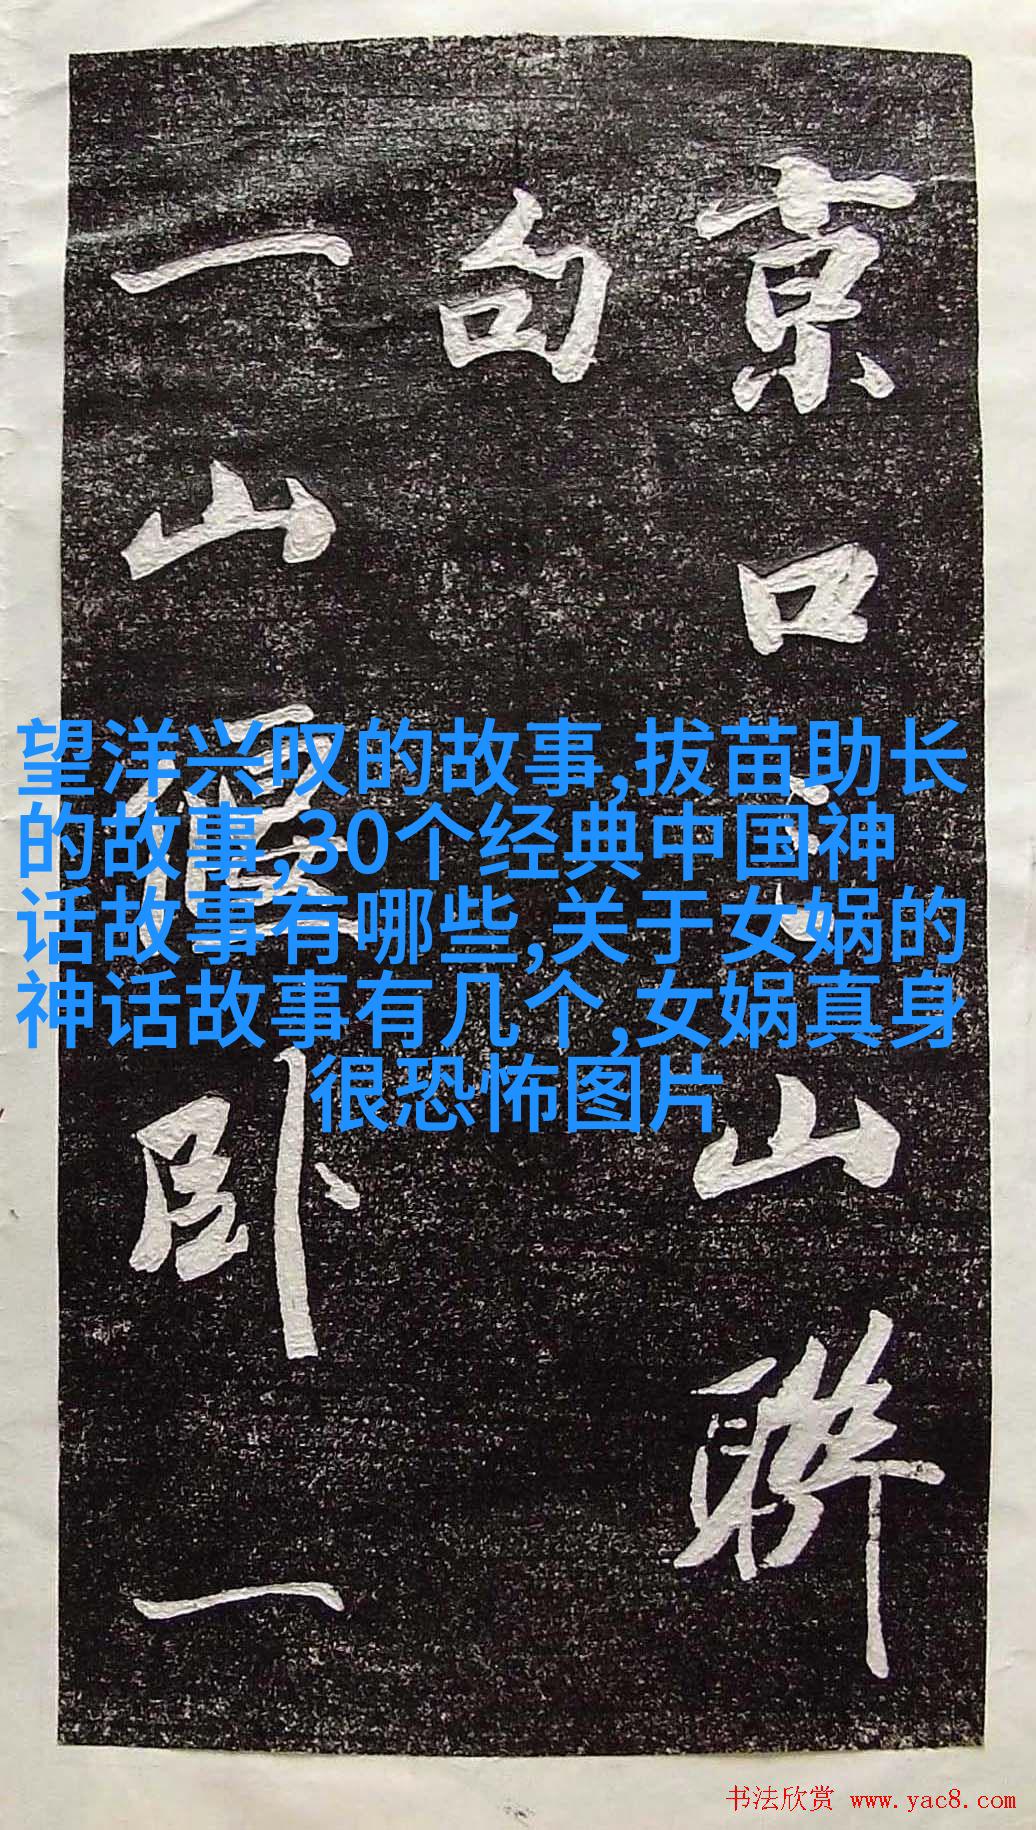 京口山聯
句
一山卧一
望洋兴叹的故事,拔苗助长
的故事,30个经典中国神
话故事有哪些,关于女娲的
神话故事有几个,女娲真身
很恐怖图片
书法欣赏 www.yac8.com